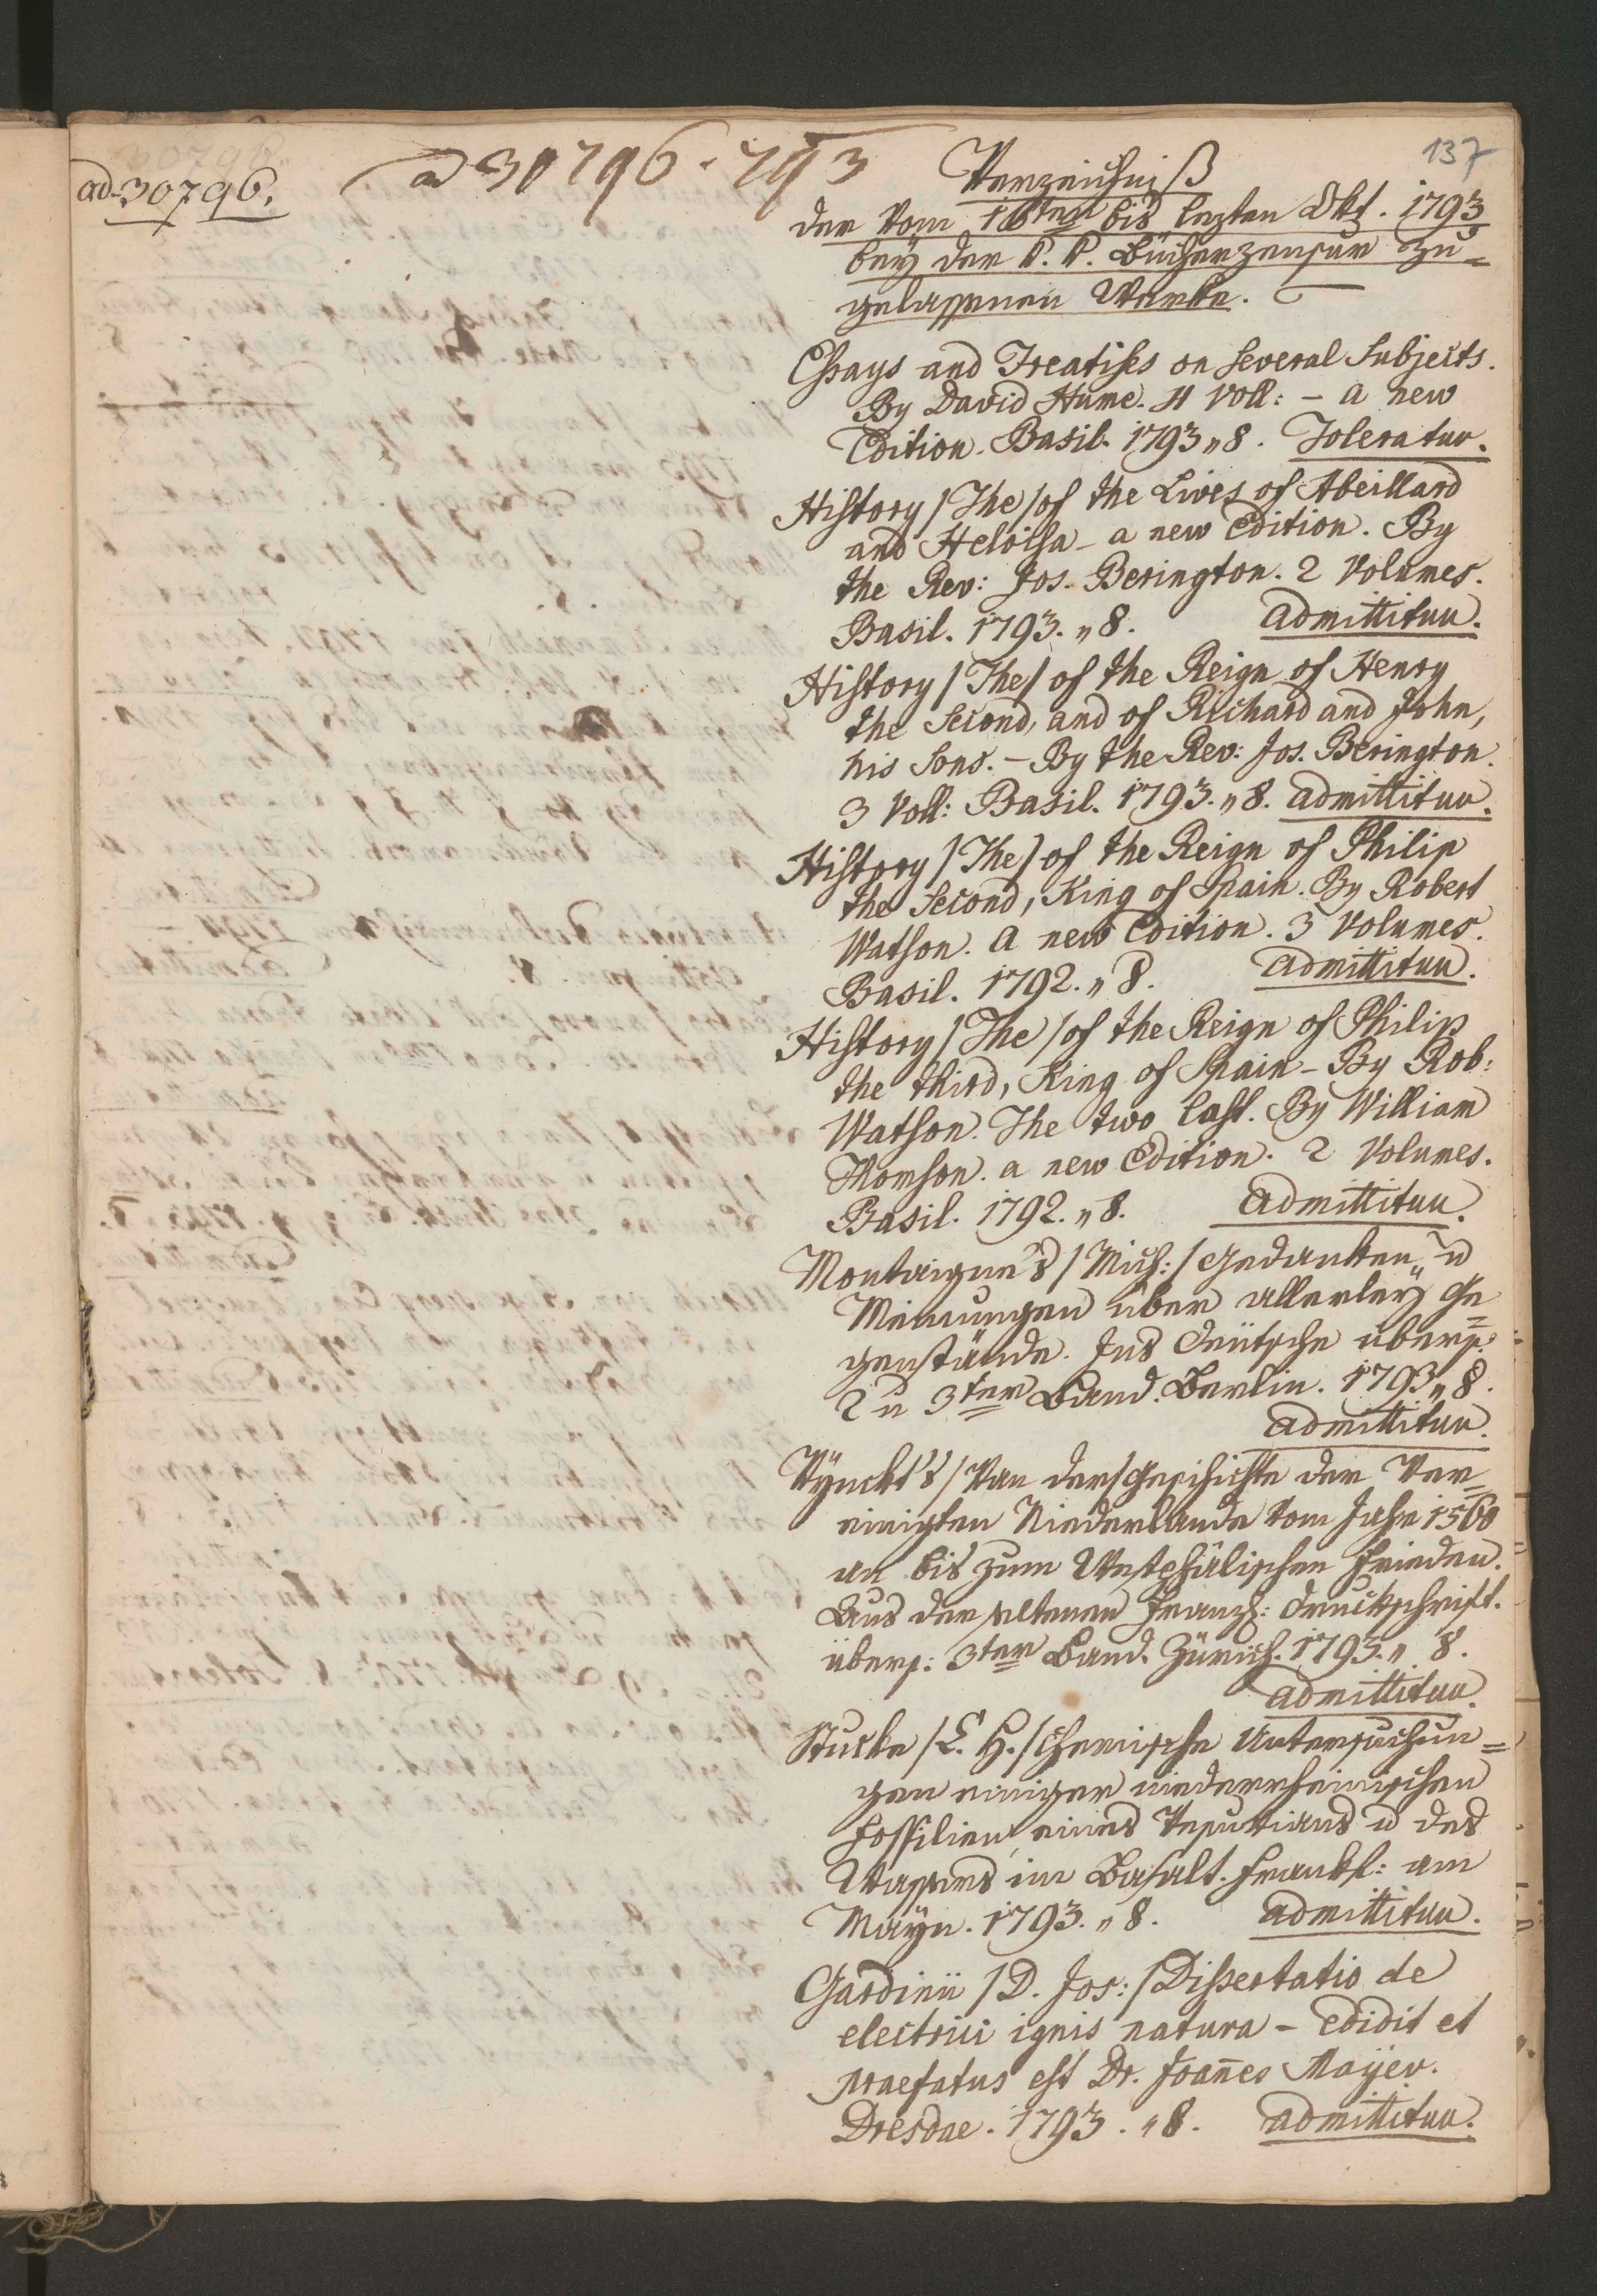 137
ad 30796.
ad 30796. 793
Verzeichniß
der vom 16ten bis lezten Okt. 1793
bey der k. k. Bücherzensur zu=
gelassenen Werke.
Essays and Treatises on several Subjects.
By David Hume. 4 Voll: – a new
Edition. Basil. 1793 „ 8. Toleratur.
History /The/ of the Lives of Abeillard
and Heloisa – a new Edition. By
the Rev: Jos. Berington. 2 Volumes.
Basil. 1793. „ 8. admittitur.
History /The/ of the Reign of Henry
the Second, and of Richard and John,
his Sons. – By the Rev: Jos. Berington.
3 Voll: Basil. 1793. „ 8. admittitur.
History /The/ of the Reign of Philip
the Second, King of Spain. By Robert
Watson. A new Edition. 3 Volumes.
Basil. 1792. „ 8. admittitur.
History /The/ of the Reign of Philip
the third, King of Spain – By Rob:
Watson. The two last. By William
Thomson. a new Edition. 2 Volumes.
Basil. 1792. „ 8. admittitur.
Montaigne's /Mich:/ Gedanken u
Meinungen über allerley Ge=
genstände. Ins Deutsche übers.
2 u 3ter Band. Berlin. 1793 „ 8.
admittitur.
Vynckt's /Van der/ Geschichte der Ver=
einigten Niederlande vom Jahr 1560
an bis zum Westphälischen Frieden.
Aus der seltenen Franz: Druckschrift.
übers: 3ter Band. Zürich. 1793. „ 8.
admittitur.
Stucke /C. H./ Chemische Untersuchun=
gen einiger niederrheinischen
Fossilien, eines Vesuvians u des
Wassers im Basalt. Frankf: am
Mayn. 1793. „ 8. admittitur.
Gardinii /D. Jos:/ Dissertatio de
electrici ignis natura – edidit et
praefatus est Dr. Joan̄es Mayer.
Dresdae. 1793. „ 8. admittitur.